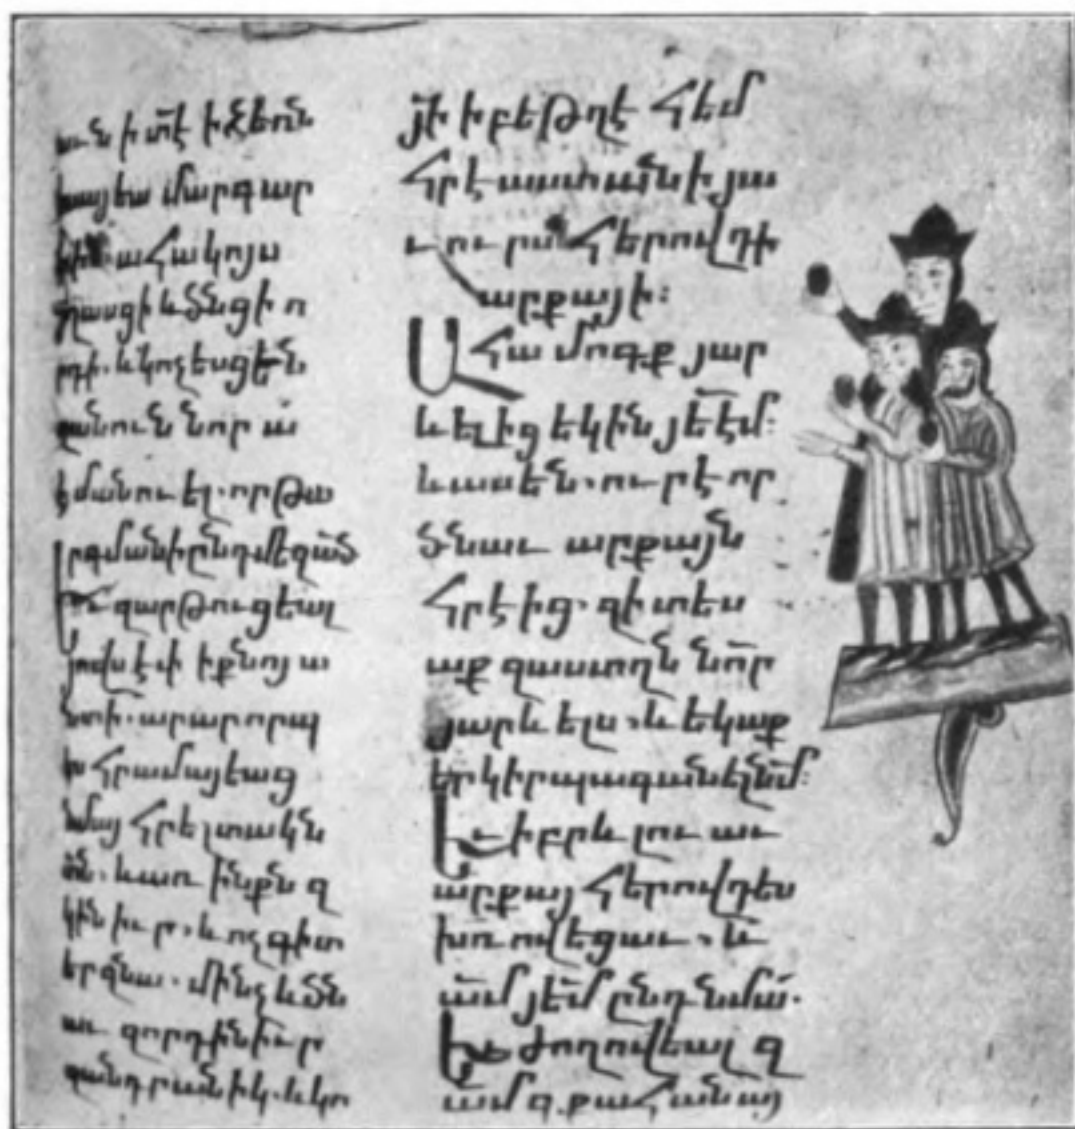 ւն ի տէ ի ձեռն
եսայեա մարգար
ահա կոյս
յղասցի և ծնցի ո
րդի. և կոչեսցեն
զանուն նորա
էմանուէլ. որ թա
րգմանի ընդ մեզ ած
Եւ զարթուցեալ
յովսէփ ի քնոյ ա
նտի. արար որպ
ս հրամայեաց
նմայ հրեշտակն
տն. և առ ինքն զ
կին իւր. և ոչ գիտ
եր զնա. մինչև ծն
աւ զորդին իւր
զանդրանիկ. և կո
յի ի բեթղէհեմ
հրէաստանի յա
ւուրս հերովդի
արքայի:
Ահա մոգք յար
ևելից եկին յեէմ:
և ասեն. ուր է որ
ծնաւ արքայն
հրէից. զի տես
աք զաստղն նոր
յարևելս. և եկաք
երկիրպագանել նմ:
Եւ իբրև լուաւ
արքայ հերովդես
խռովեցաւ. և
ամ յեմ ընդ նմա.
Եւ ժողովեալ զ
ամ զքահանայ